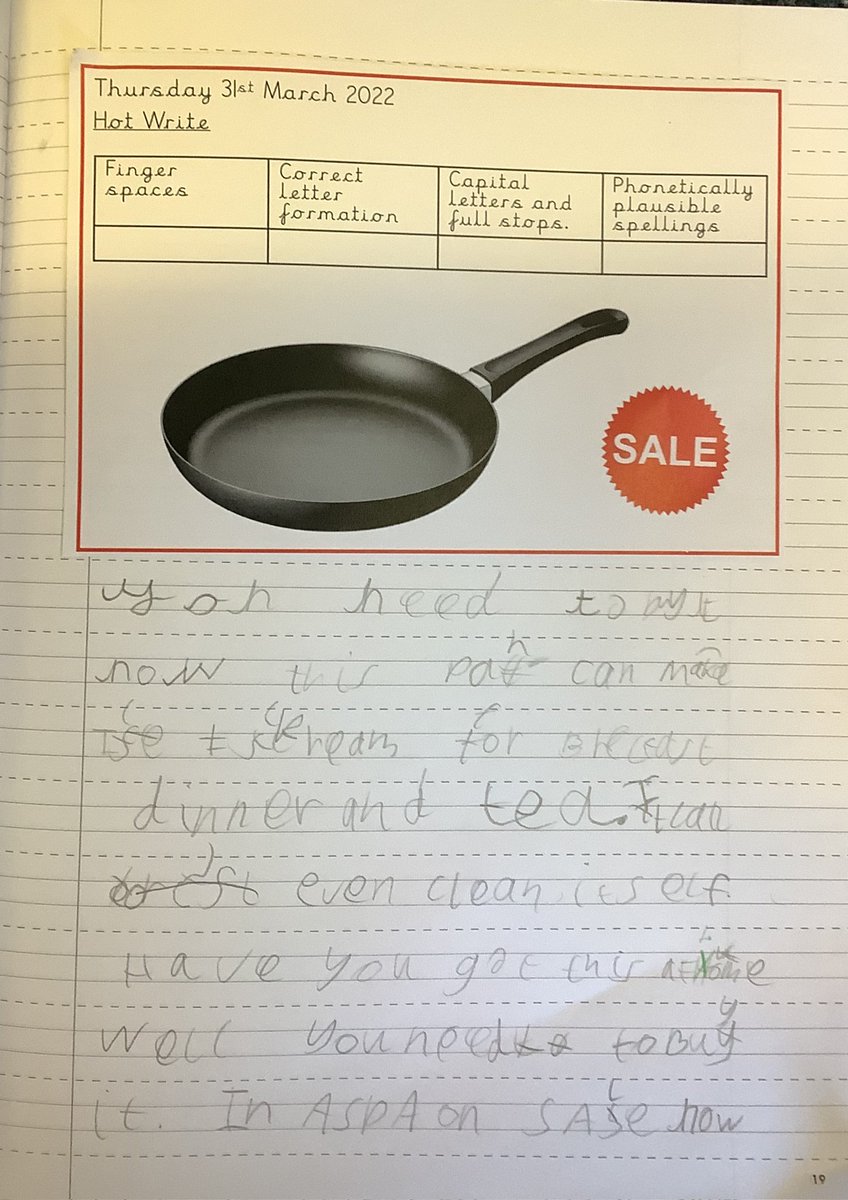 Thursday 31st March 2022
Hot Write
Finger spaces
Correct letter formation
Capital letters and full stops.
Phonetically plausible spellings
SALE
you need to buy it
now this pan can make
ice kream for Brecfast
dinner and tea. It can
even clean itself.
Have you got this at home
well you need to Buy
it. In ASDA on SAle now
19